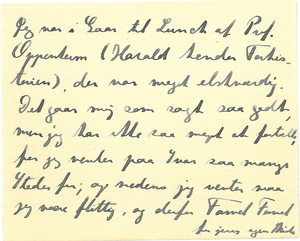 Jeg var i Gaar til Lunch af Prof.
Oppenheim (Harald kender Forhis-
torien), der var meget elskværdig.
Det gaar mig som sagt saa godt,
men jeg har ikke saa meget at fortælle,
før jeg venter paa Svar saa mange
Steder fra; og medens jeg venter maa
jeg være flittig, og derfor Farvel Farvel
fra jeres egen Niels